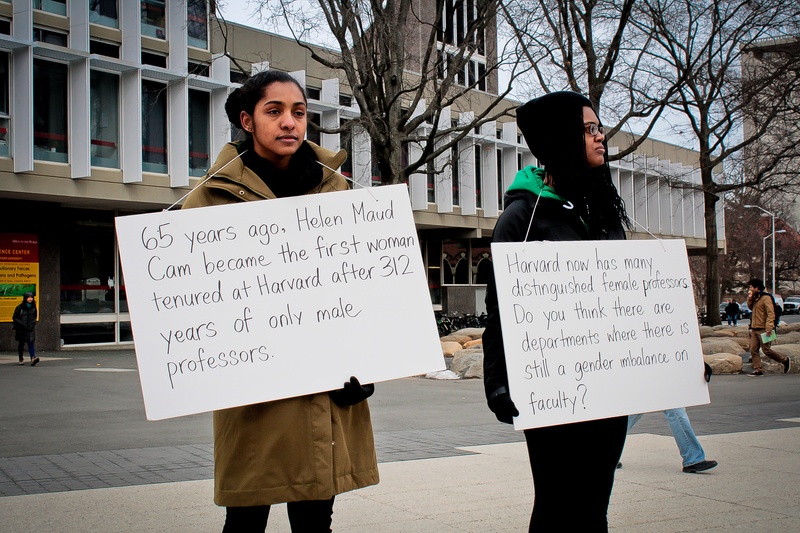 65 years ago, Helen Maud
Cam became the first woman
tenured at Harvard after 312
years of only male
professors.
Harvard now has many
distinguished female professors.
Do you think there are
departments where there is
still a gender imbalance on
faculty?
ENCE CENTER
utionary Forces
and Pathogens